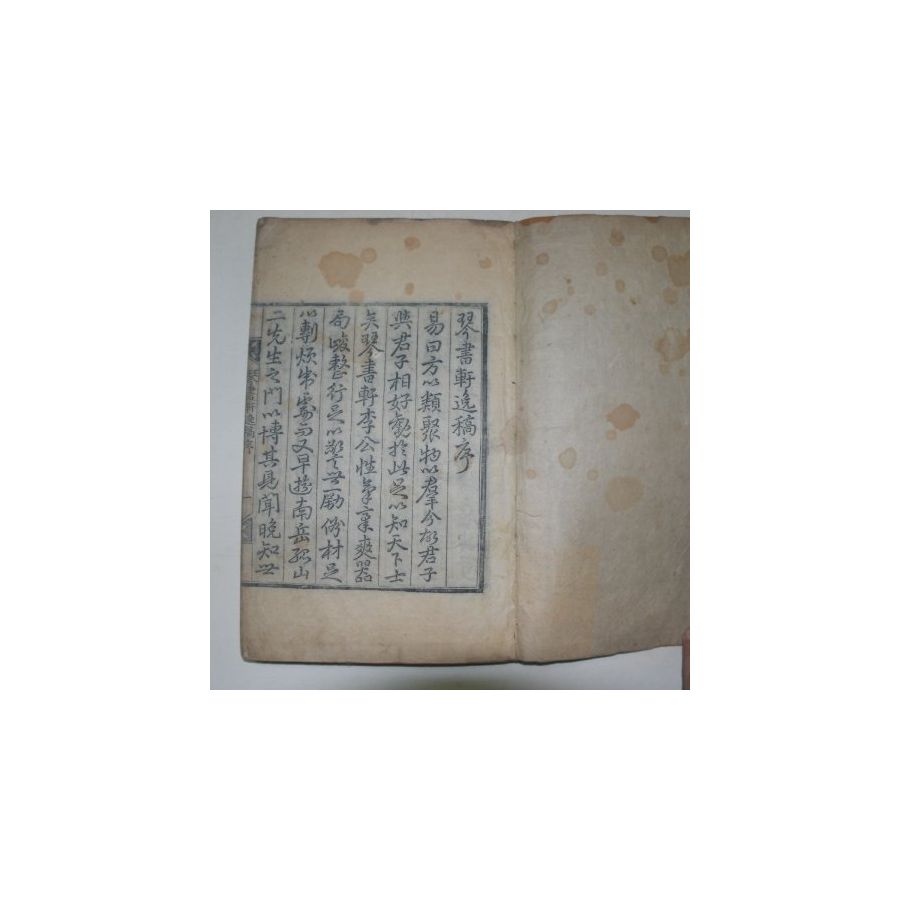 琴書軒逸稿序
易曰方以類聚物以羣今夫君子
與君子相好觀於此足以知天下士
矣琴書軒李公性氣豪爽器
局峻整行足以警世勵俗材足
以剸煩處而又早遊南岳孤山
二先生之門以博其見聞晩知世
琴書軒逸稿序 一